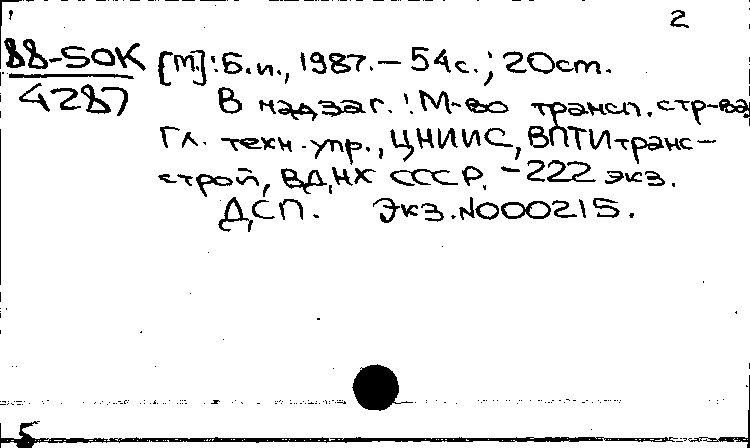 2
88-5ОК [М.]: Б.и., 1987. – 54с.; 20ст.
4287 В надзаг.: М-во трансп. стр-ва,
Гл. техн. упр., ЦНИИС, ВПТИтранс-
строй, ВДНХ СССР. – 222 экз.
ДСП. Экз. N000215.
5